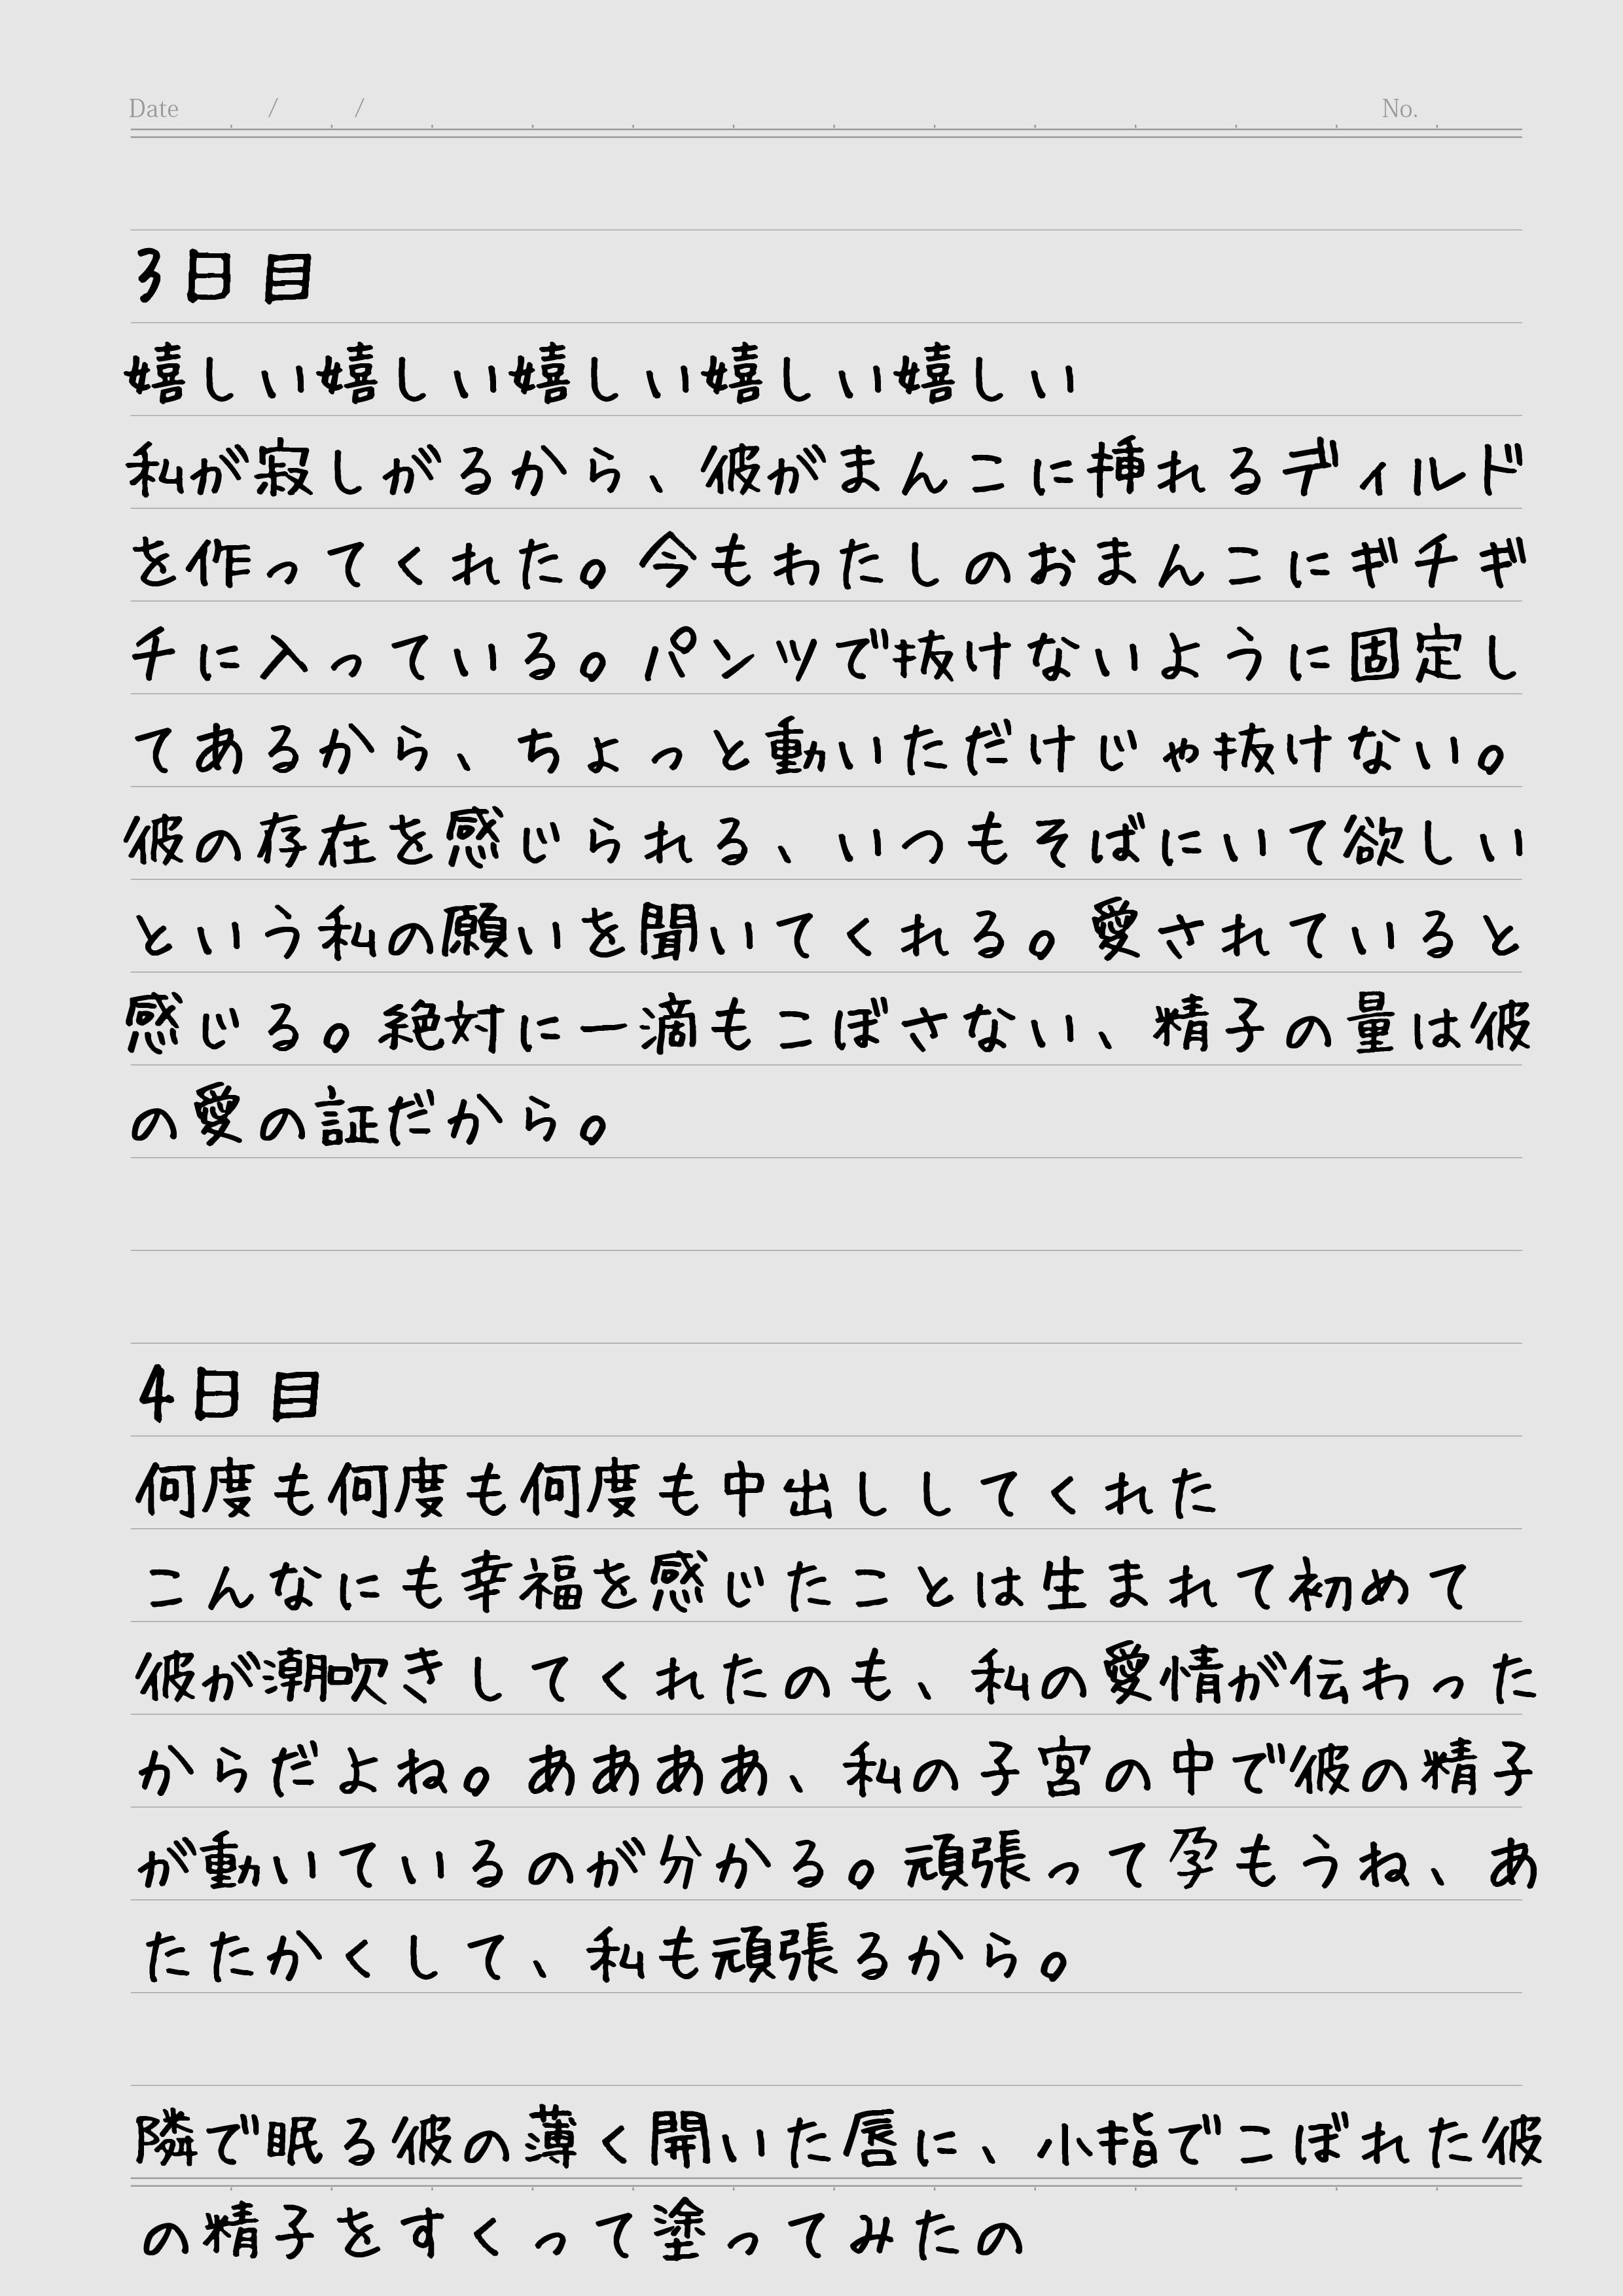 Date / / No.
3日目
嬉しい嬉しい嬉しい嬉しい嬉しい
私が寂しがるから、彼がまんこに挿れるディルド
を作ってくれた。今もわたしのおまんこにギチギ
チに入っている。パンツで抜けないように固定し
てあるから、ちょっと動いただけじゃ抜けない。
彼の存在を感じられる、いつもそばにいて欲しい
という私の願いを聞いてくれる。愛されていると
感じる。絶対に一滴もこぼさない、精子の量は彼
の愛の証だから。
4日目
何度も何度も何度も中出ししてくれた
こんなにも幸福を感じたことは生まれて初めて
彼が潮吹きしてくれたのも、私の愛情が伝わった
からだよね。ああああ、私の子宮の中で彼の精子
が動いているのが分かる。頑張って孕もうね、あ
たたかくして、私も頑張るから。
隣で眠る彼の薄く開いた唇に、小指でこぼれた彼
の精子をすくって塗ってみたの